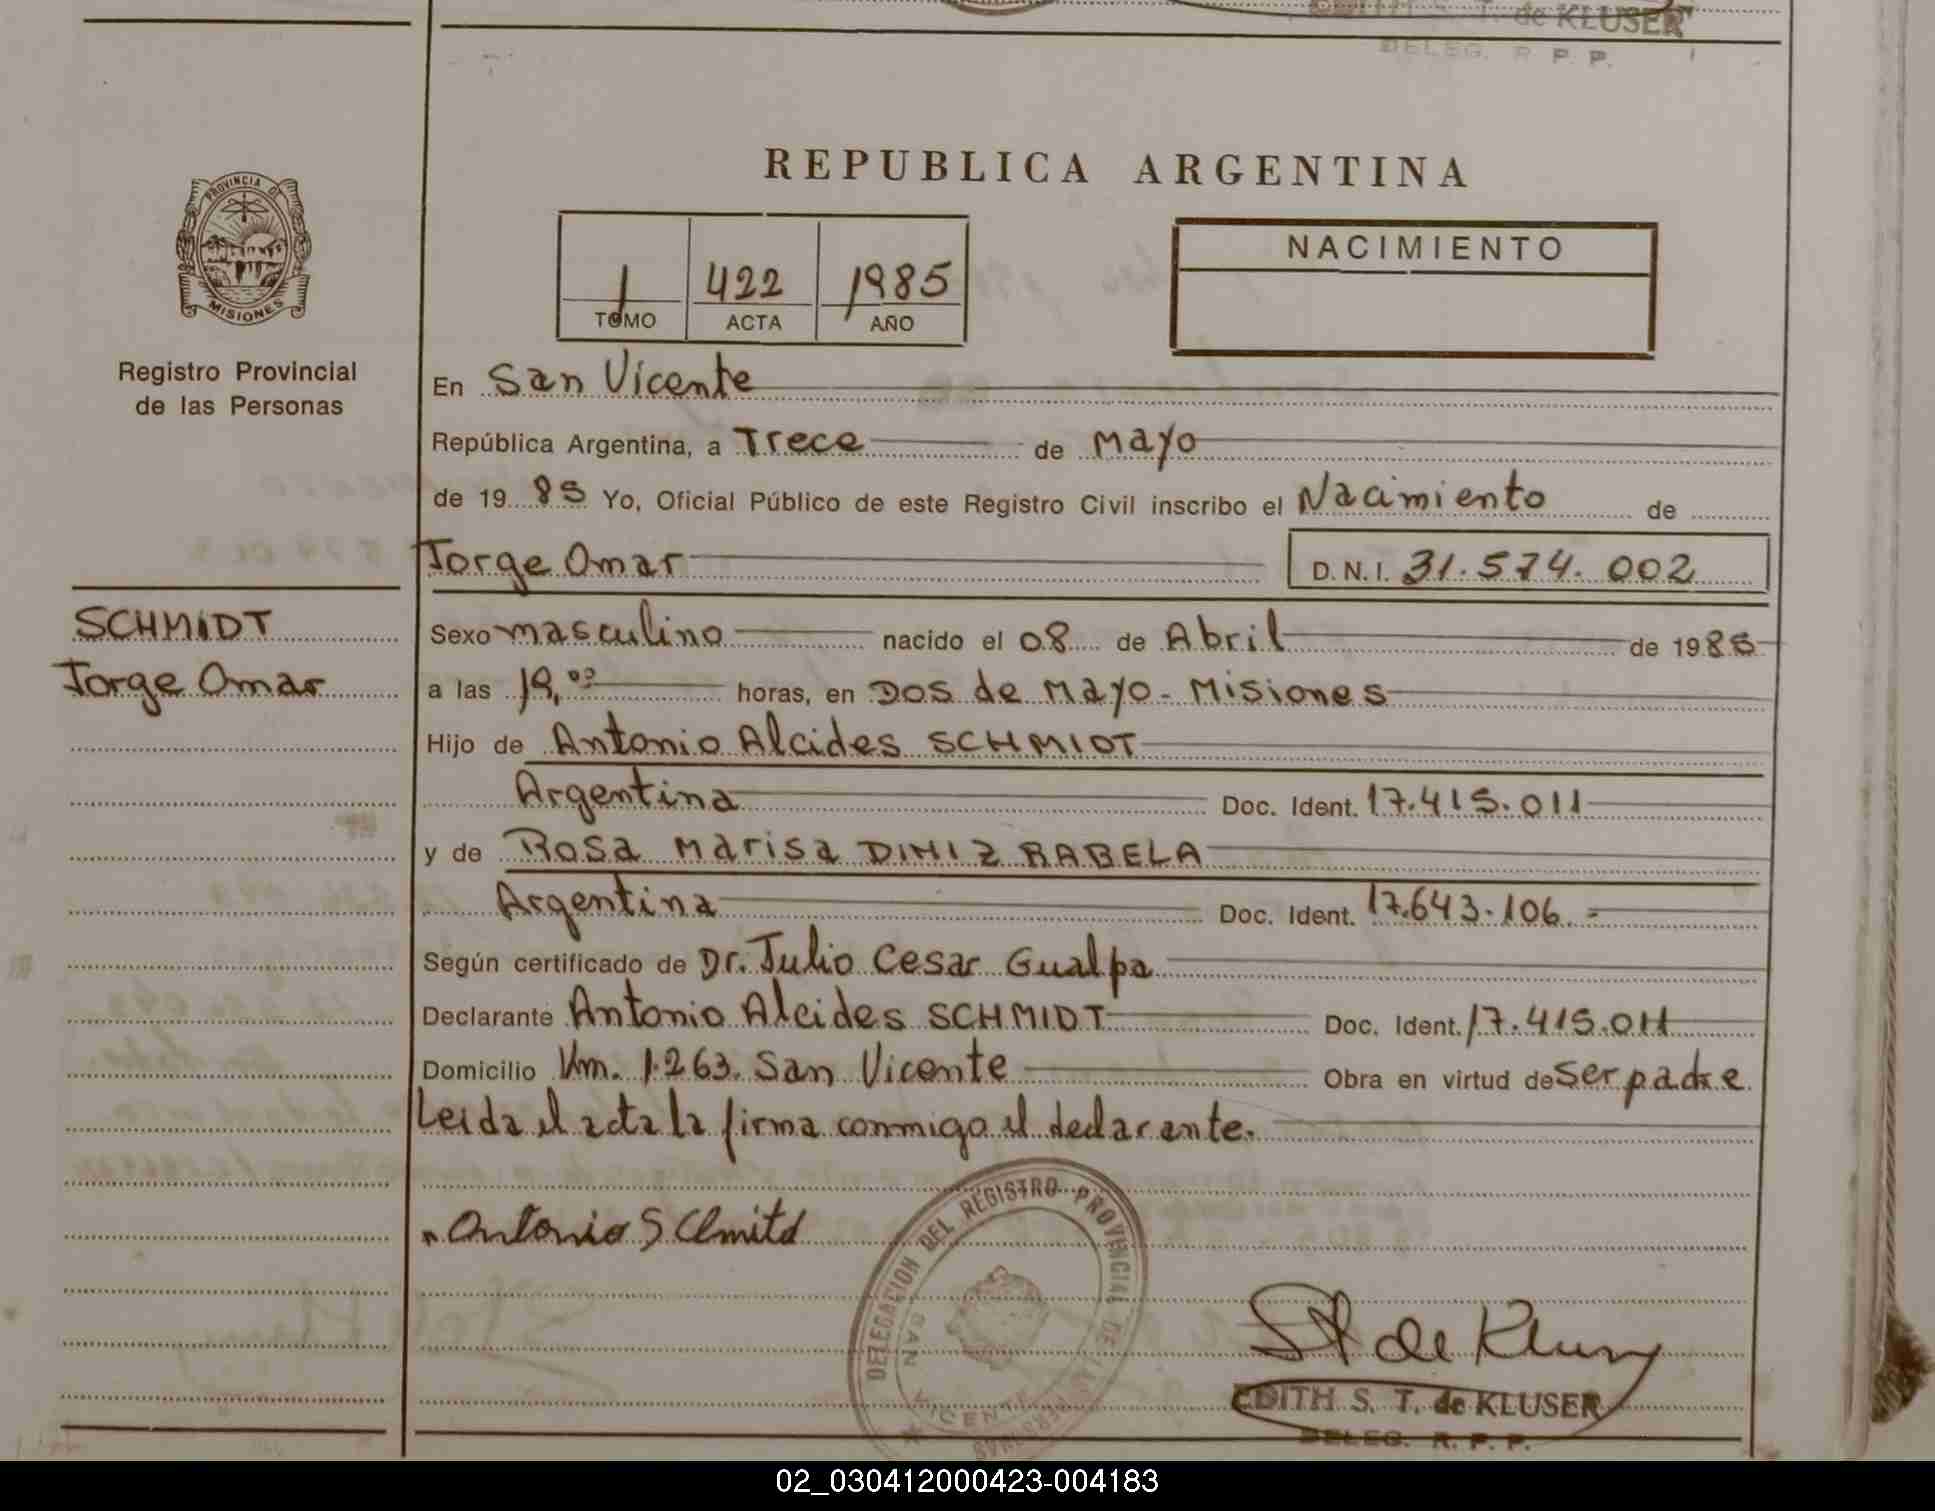 EDITH S. T. de KLUSER
DELEG. R. P. P.
PROVINCIA D
MISIONES
Registro Provincial
de las Personas
SCHMIDT
Jorge Omar
REPUBLICA ARGENTINA
1 422 1985
TOMO ACTA AÑO
NACIMIENTO
En San Vicente
República Argentina, a Trece de Mayo
de 19 85 Yo, Oficial Público de este Registro Civil inscribo el Nacimiento de
Jorge Omar D.N.I. 31.574.002
Sexo masculino nacido el 08 de Abril de 1985
a las 19,00 horas, en Dos de Mayo - Misiones
Hijo de Antonio Alcides SCHMIDT
Argentina Doc. Ident. 17.415.011
y de Rosa Marisa DINIZ RABELA
Argentina Doc. Ident. 17.643.106.-
Según certificado de Dr. Julio Cesar Gualpa
Declarante Antonio Alcides SCHMIDT Doc. Ident. 17.415.011
Domicilio Km. 1.263. San Vicente Obra en virtud de Ser padre
Leida el acta la firma conmigo el declarante.
Antonio SClmitd
DELEGACION DEL REGISTRO PROVINCIAL DE LAS PERSONAS
SAN VICENTE
St de Kluser
EDITH S. T. de KLUSER
DELEG. R. P. P.
02_030412000423-004183